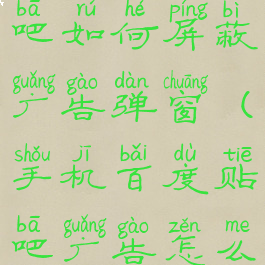 bā rú hé píng bì
吧如何屏蔽
guǎng gào dàn chuāng
广告弹窗（
shǒu jī bǎi dù tiē
手机百度贴
bā guǎng gào zěn me
吧广告怎么